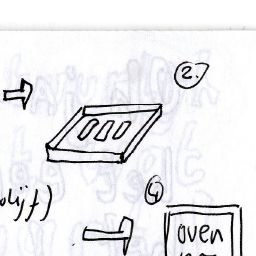 2.
olijf)
4
oven